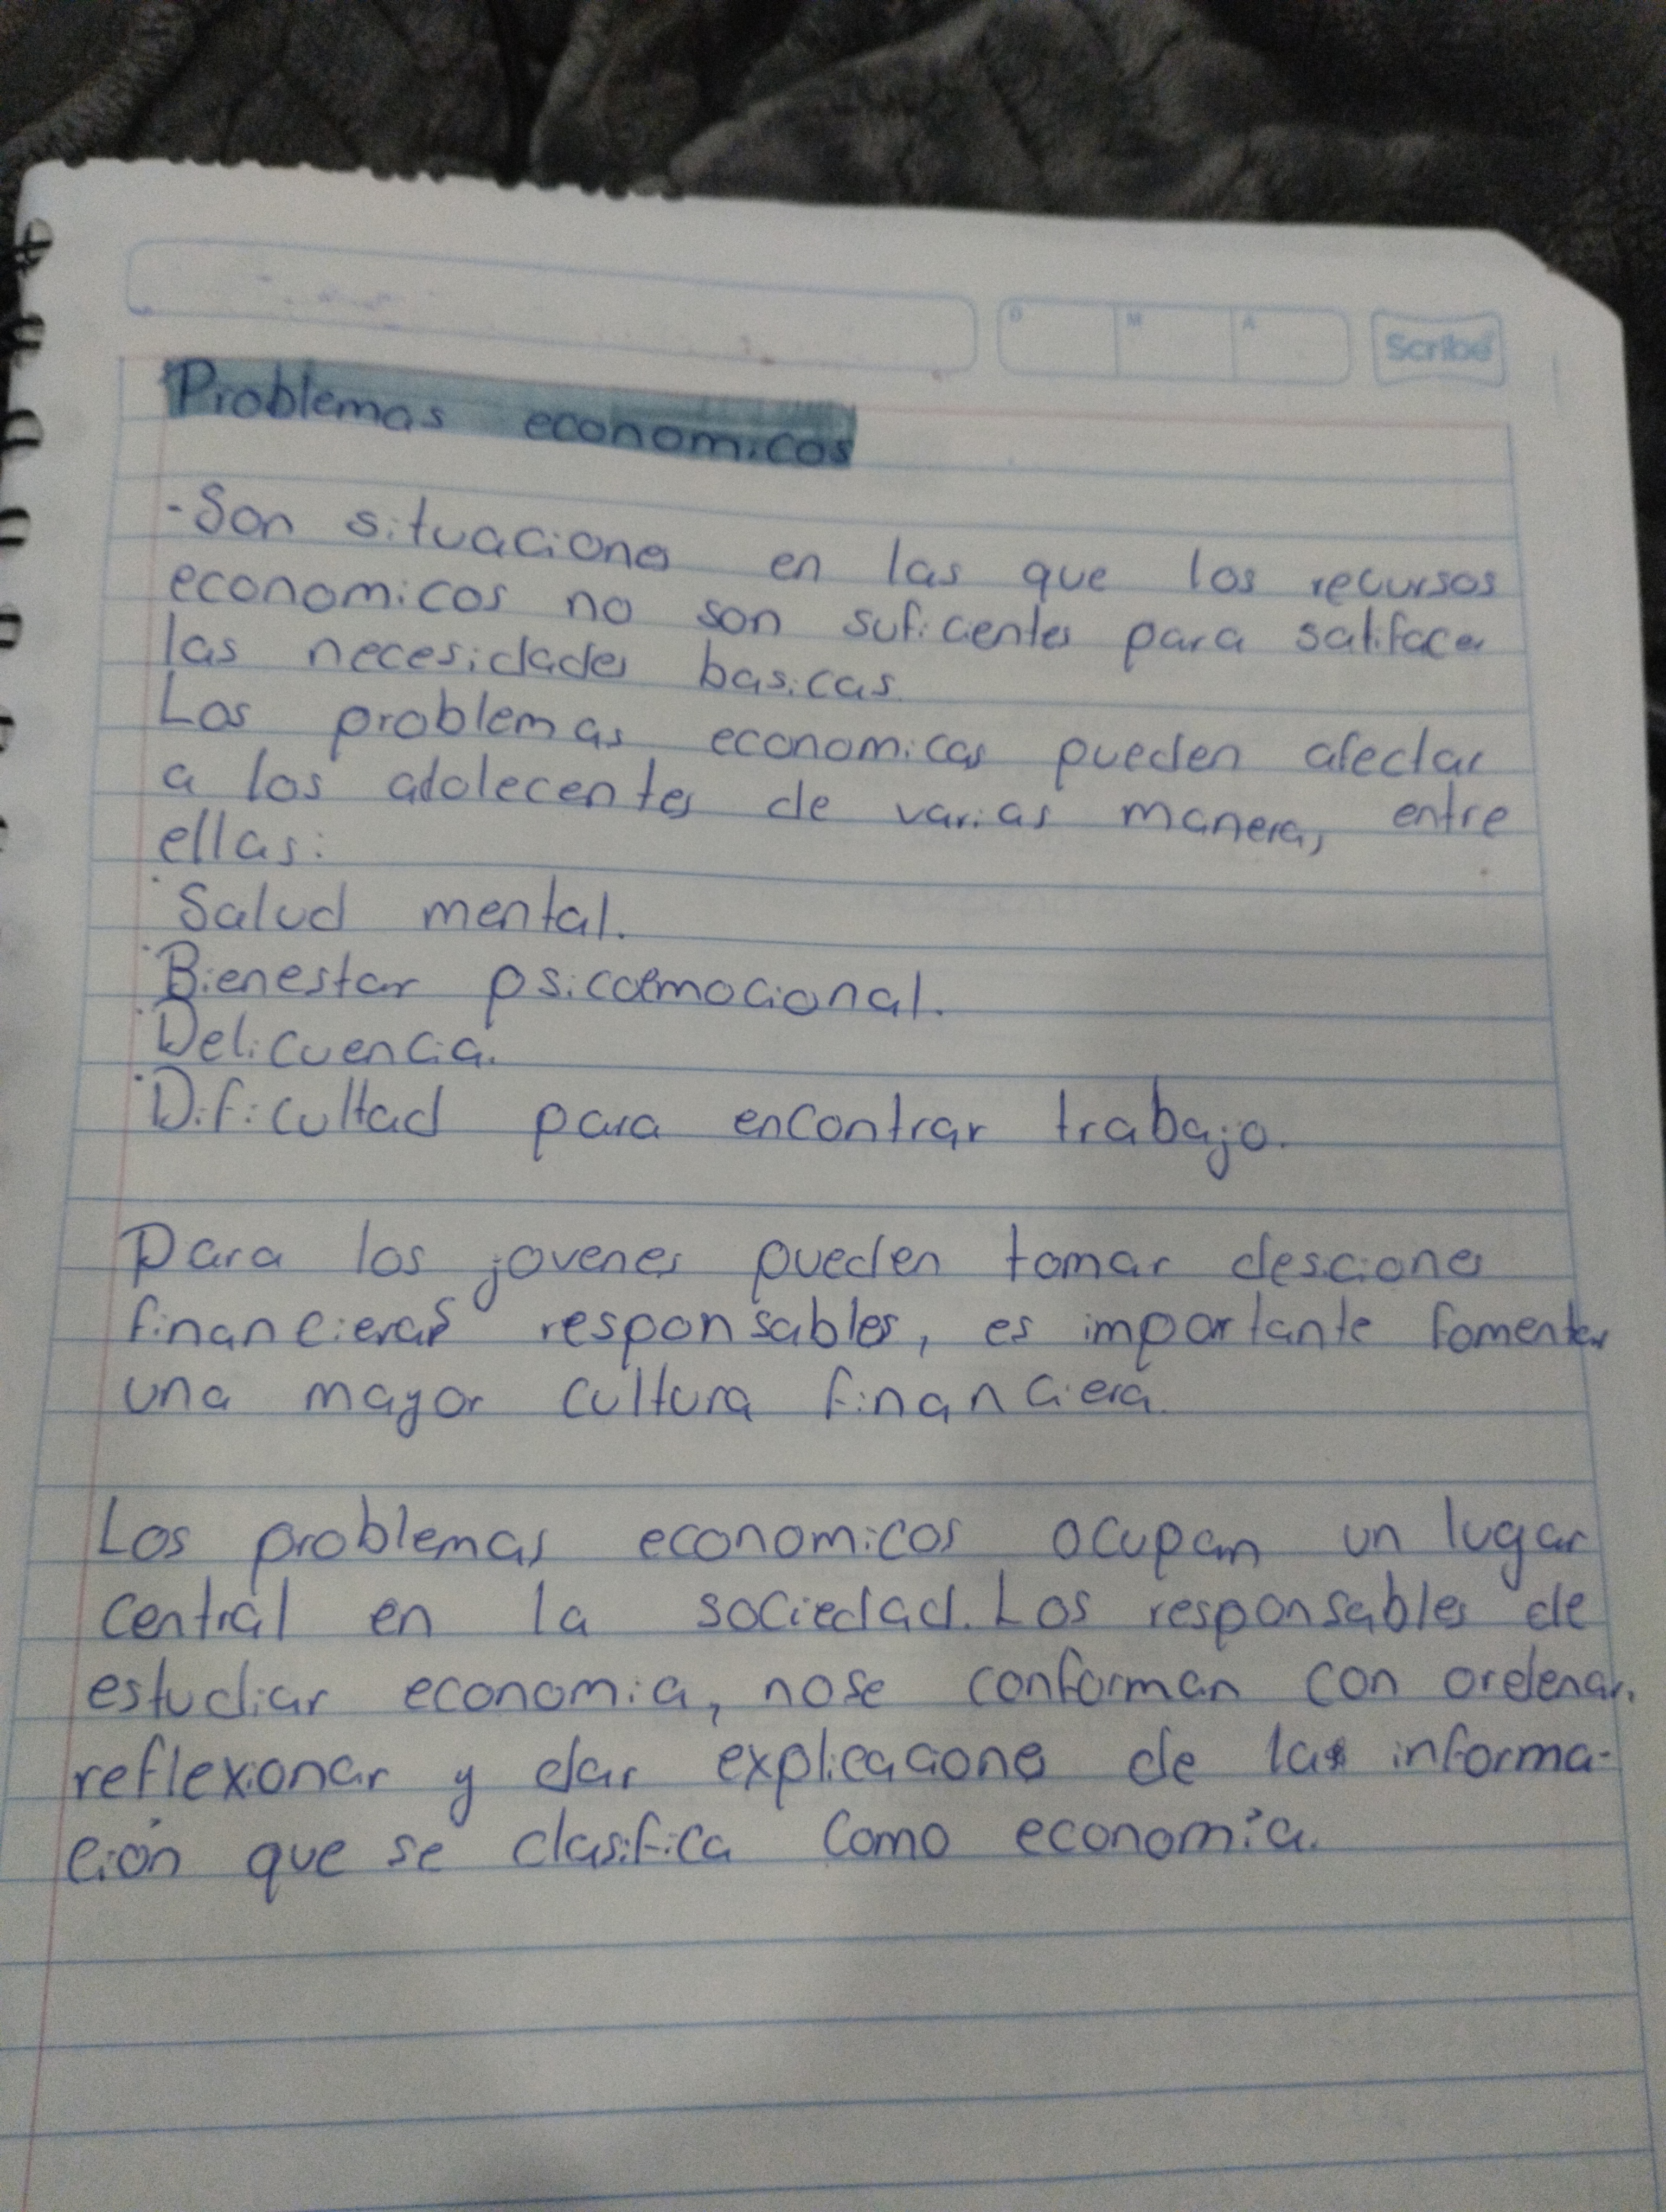 D M A Scribe
Problemas economicos
-Son situaciones en las que los recursos
economicos no son suficientes para satifacer
las necesidades basicas.
Los problemas economicos pueden afectar
a los adolecentes de varias manera, entre
ellas:
·Salud mental.
·Bienestar psicoemocional.
·Delicuencia.
·Dificultad para encontrar trabajo.
Para los jovenes pueden tomar desciones
financieras responsables, es importante fomentar
una mayor cultura financiera.
Los problemas economicos ocupan un lugar
central en la sociedad. Los responsables de
estudiar economia, nose conforman con ordenar,
reflexionar y dar explicaciones de las informa-
ción que se clasifica como economía.